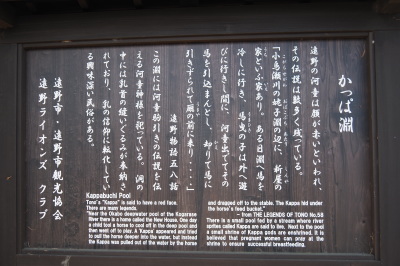 かっぱ淵
遠野の河童は顔が赤いといわれ、
その伝説は数多く残っている。
「小烏瀬川の姥子淵の辺に、新屋の
家といふ家あり。ある日淵へ馬を
冷しに行き、馬曳の子は外へ遊
びに行きし間に、河童出でてその
馬を引込まんとし、却りて馬に
引きずられて厩の前に来り・・・」
遠野物語五八話
この淵には河童駒引きの伝説を伝
える河童神様を祀っている。洞の
中には乳首の縫いぐるみが奉納さ
れており、乳の信仰に転化してい
る興味深い民俗がある。
遠野市・遠野市観光協会
遠野ライオンズ クラブ
Kappabuchi Pool
Tono's "Kappa" is said to have a red face.
There are many legends.
"Near the Okabo deepwater pool of the Kogarase
River there is a home called the New House. One day
a child tied a horse to cool off in the deep pool and
then went off to play. A Kappa appeared and tried
to pull the horse deeper into the water, but instead
the Kappa was pulled out of the water by the horse
and dragged off to the stable. The Kappa hid under
the horse's feed bucket."
– from THE LEGENDS OF TONO No.58
There is a small pool fed by a stream where river
sprites called Kappa are said to live. Next to the pool
a small shrine of Kappa gods are enshrined. It is
believed that pregnant women can pray at the
shrine to ensure successful breastfeeding.